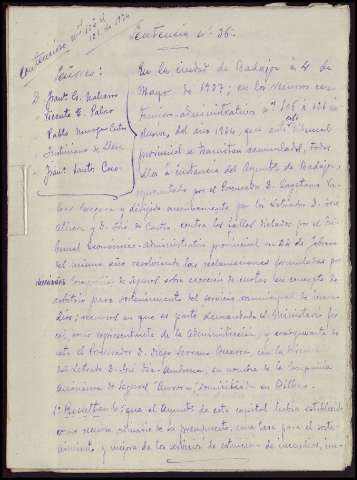 Contencioso nº 105 á
121 de 1924
Sentencia nº 36.
Señores:
D. Franº G.
" Vicente E. Pabio
" Pablo Murga Castro
" Justiniano de Llera
" Franº Santos Coco
En la ciudad de Badajoz á 4 de
Mayo de 1927; en los recursos con-
tencioso-administrativos nº 105 á 121 in-
clusives, del año 1924, que ante este Tribunal
provincial se tramitan acumulados, todos
ellos á instancia del Ayuntº de Badajoz,
representado por el Procurador D. Cayetano
y dirigido por los Letrados D. José
y D. de Castro contra los fallos dictados por el Tri-
bunal Económico-administrativo provincial en 26 de Febrero
del mismo año resolviendo las reclamaciones formuladas por
Compañías de Seguros sobre exacción de cuotas en concepto de
arbitrio para sostenimiento del servicio municipal de incen-
dios; recursos en que es parte demandada el Ministerio Fis-
cal, como representante de la Administración, y coadyuvante de
este el Procurador D. Diego Serrano Becerra, con la dirección
del Letrado D. José Díaz-Ambrona, en nombre de la Compañía
Anónima de Seguros "Aurora", domiciliada en Bilbao.
1º Resultando: que el Ayuntº de esta capital tenía establecido
como recurso ordinario de su presupuesto, una tasa para el soste-
nimiento y mejora de los servicios de extinción de incendios, im-